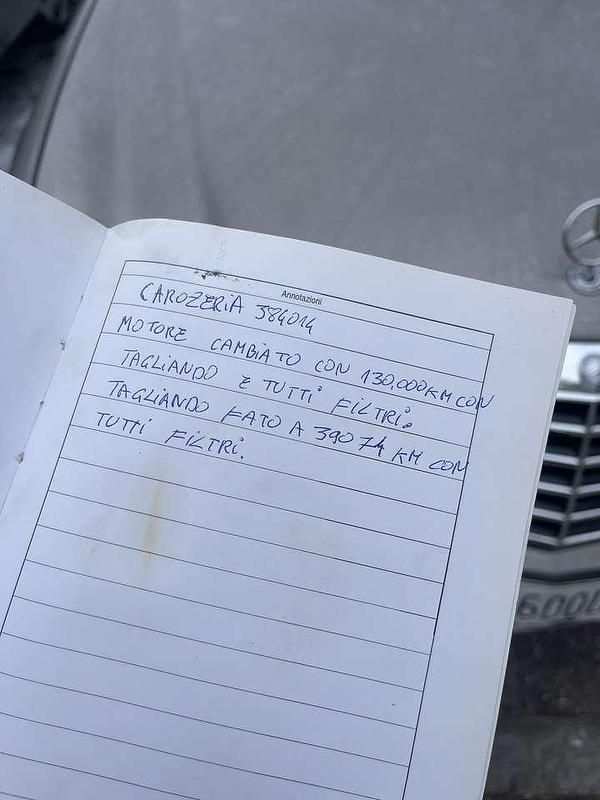 Annotazioni
CAROZERIA 384014
MOTORE CAMBIATO CON 130.000KM CON
TAGLIANDO E TUTTI FILTRI.
TAGLIANDO FATO A 39074 KM CON
TUTTI FILTRI.